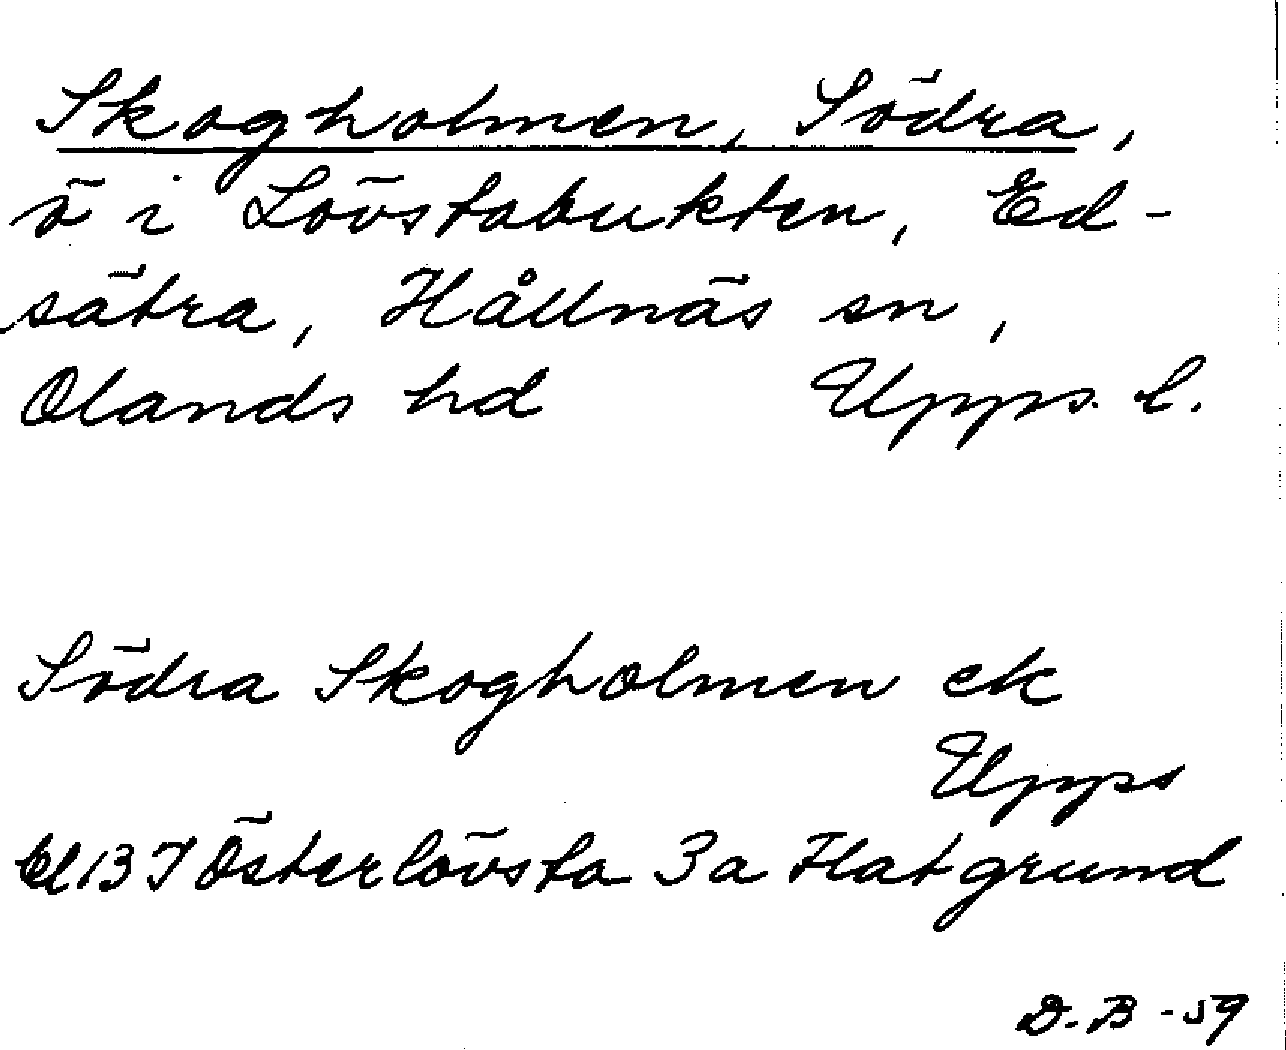 Skogholmen, Södra,
ö i Lövstabukten, Ed-
sätra, Hållnäs sn,
Olands hd Upps. l.
Södra Skogholmen ek
Upps
13 I Österlövsta 3a Flatgrund
D. B - 59